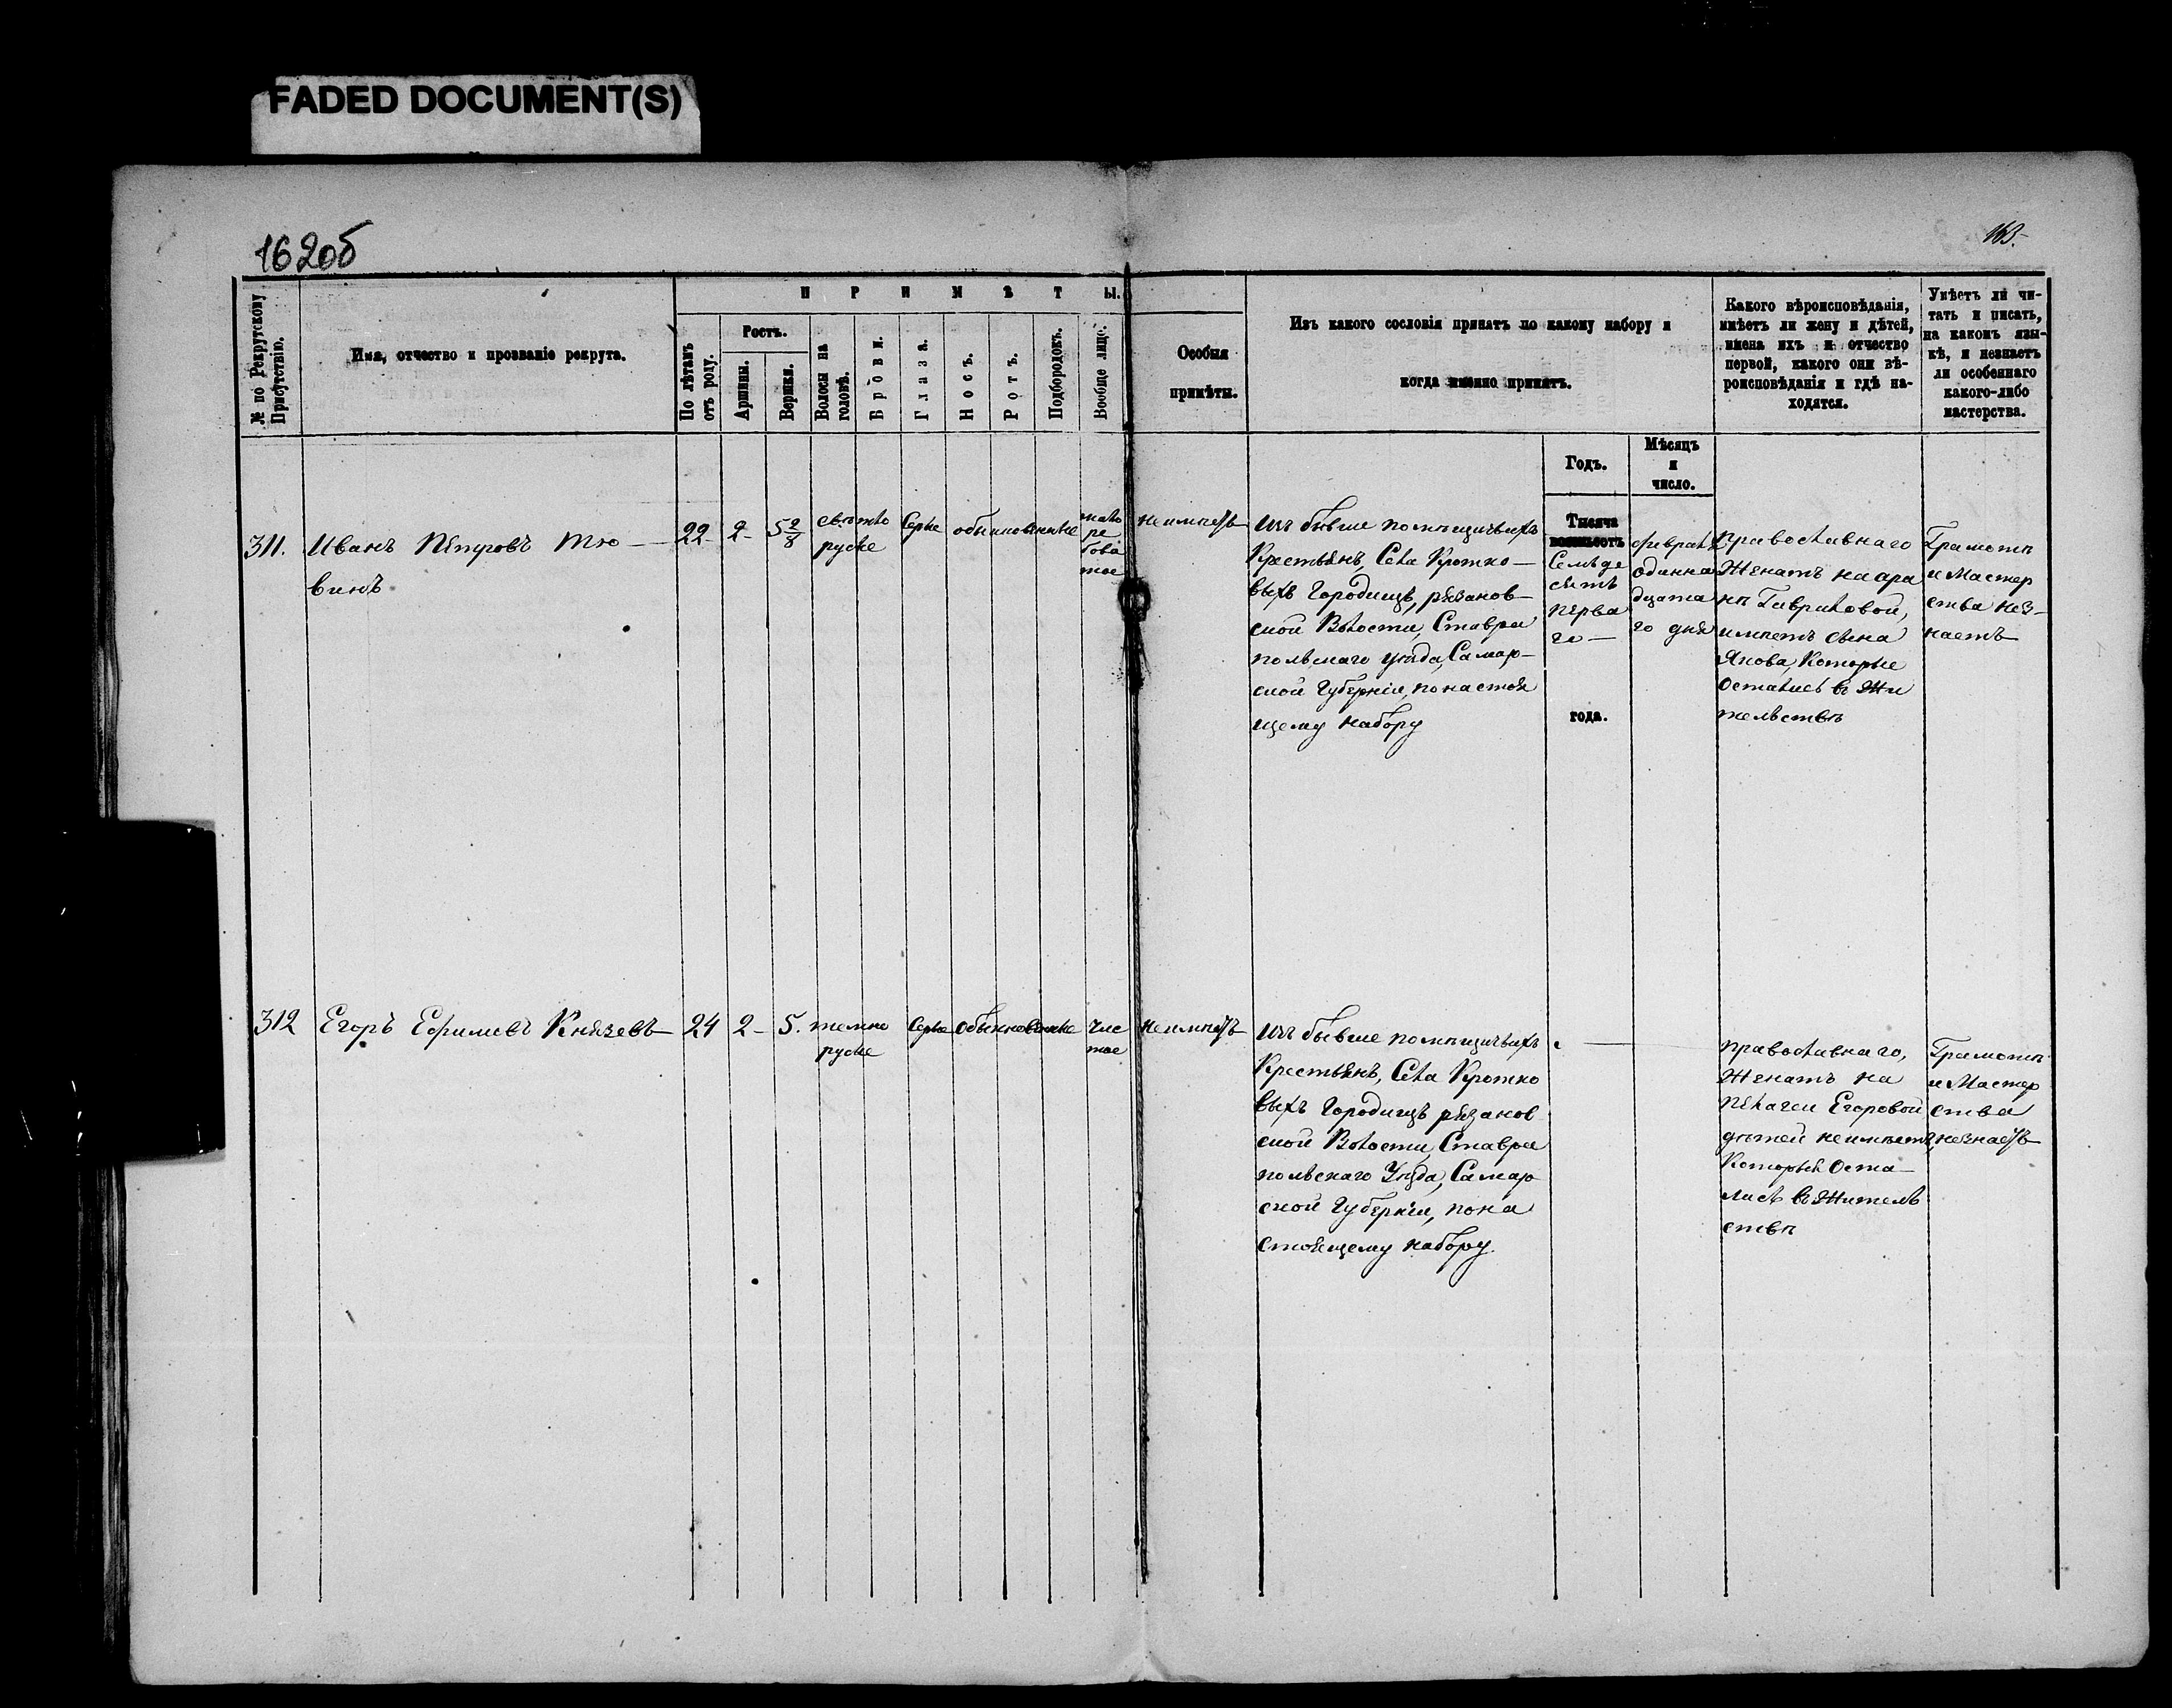 FADED DOCUMENT(S)
162об
163.
№ по Рекрутскому
Присутствію.
Имя, отчество и прозваніе рекрута.
ПРИМѢТЫ.
По лѣтамъ
отъ роду.
Ростъ.
Аршины.
Вершки.
Волосы на
головѣ.
Брови.
Глаза.
Носъ.
Ротъ.
Подбородокъ.
Вообще лице.
Особыя
примѣты.
Изъ какого сословія принятъ по какому набору и
когда именно принятъ.
Какого вѣроисповѣданія,
имѣетъ ли жену и дѣтей,
имена ихъ и отчество
первой, какого они вѣ-
роисповѣданія и гдѣ на-
ходятся.
Умѣетъ ли чи-
тать и писать,
на какомъ язы-
кѣ, и незнаетъ
ли особеннаго
какого-либо
мастерства.
Годъ.
Мѣсяцъ
и
число.
311.
Иванъ Петровъ Тю-
винъ
22
2
5 2/8
свѣтло
русые
Серые
обыкновенные
не имѣетъ
Изъ бывше помѣщичьихъ
Крестьянъ, Села Кротко-
выхъ Городищъ, рязанов-
ской Волости, Ставро
польскаго уѣзда, Самар-
ской Губерніи, по настоя
щему набору
Тысяча
восемьсотъ
Семьде
сятъ
перва
го
года.
февраля
одинна
дцата
го дня
православнаго
Женатъ на
Гавриловой,
имѣетъ сына
Якова, Которые
Остались в Жи
тельствѣ
Грамотѣ
и Мастер
ства нез-
наетъ
312
Егоръ Ефимовъ Князевъ
24
2
5.
темно
русые
Серые
Обыкновенные
чис
тое
не имѣетъ
Изъ бывше помѣщичьихъ
Крестьянъ, Села Кротко
выхъ Городищъ рязанов
ской Волости, Ставро
польскаго Уѣзда, Самар
ской Губерніи, по на
стоящему набору.
православнаго,
Женатъ на
Пелагеи Егоровой
дѣтей не имѣетъ,
Которыя Оста-
лись в Житель
ствѣ
Грамотѣ
и Мастер
ства
незнаетъ